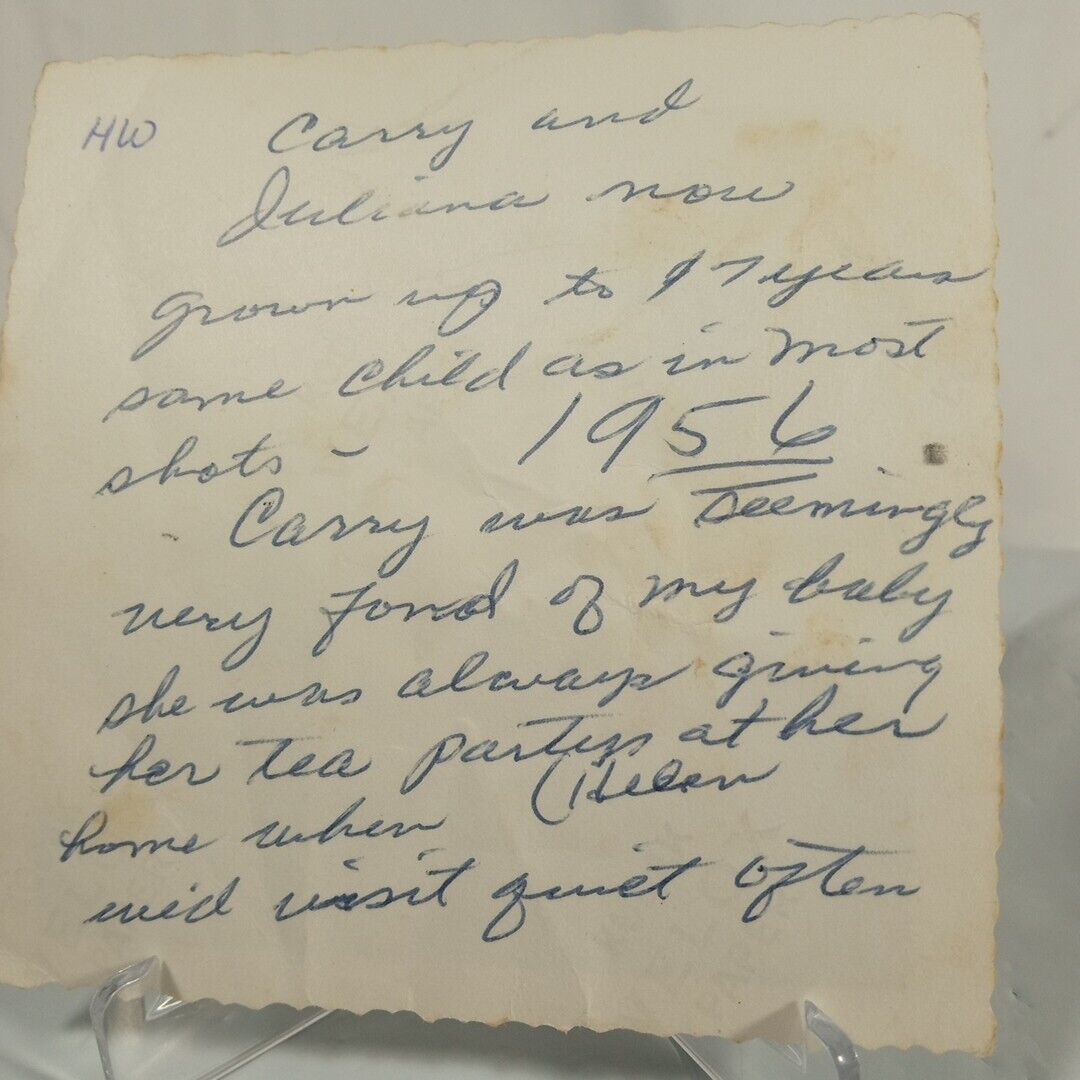 HW Carry and
Juliana now
grown up to 17 years
same child as in most
shots - 1956
Carry was seemingly
very fond of my baby
she was always giving
her tea partys at her
home when (Helen
wid visit quiet often